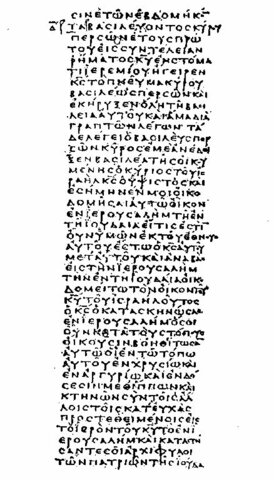 ϹΙΝΕΤΩΝΕΒΔΟΜΗΚΟ̅
ΤΑΒΑϹΙΛΕΥΟΝΤΟϹΚΥΡΥ
ΠΕΡϹΩΝΕΤΟΥϹΠΡΩ
ΤΟΥΕΙϹϹΥΝΤΕΛΕΙΑΝ
ΡΗΜΑΤΟϹΚ̅Υ̅ΕΝϹΤΟΜΑ
ΤΙΙΕΡΕΜΙΟΥΗΓΕΙΡΕΝ
Κ̅Ϲ̅ΤΟΠΝΕΥΜΑΚΥΡΟΥ
ΒΑϹΙΛΕΩϹΠΕΡϹΩΝΚΑΙ
ΕΚΗΡΥΞΕΝΟΛΗΤΗΒΑϹΙ
ΛΕΙΑΑΥΤΟΥΚΑΙΑΜΑΔΙΑ
ΓΡΑΠΤΩΝΛΕΓΩΝΤΑ
ΔΕΛΕΓΕΙΟΒΑϹΙΛΕΥϹΠΕΡ
ϹΩΝΚΥΡΟϹΕΜΕΑΝΕΔΙ
ΞΕΝΒΑϹΙΛΕΑΤΗϹΟΙΚΥ
ΜΕΝΗϹΟΚΥΡΙΟϹΤΟΥΙϹ
ΡΑΗΛΚ̅Ϲ̅ΟΥΨΙϹΤΟϹΚΑΙ
ΕϹΗΜΗΝΕΝΜΟΙΟΙΚΟ
ΔΟΜΗϹΑΙΑΥΤΩΟΙΚΟΝ
ΕΝΙΕΡΟΥϹΑΛΗΜΤΗΕΝ
ΤΗΙΟΥΔΑΙΑΕΙΤΙϹΕϹΤΙ̅
ΟΥΝΥΜΩΝΕΚΤΟΥΕΘΝΟΥϹ
ΑΥΤΟΥΕϹΤΩΟΚ̅Ϲ̅ΑΥΤΥ
ΜΕΤΑΥΤΟΥΚΑΙΑΝΑΒΑϹ
ΕΙϹΤΗΝΙΕΡΟΥϹΑΛΗΜ
ΤΗΝΕΝΤΗΙΟΥΔΑΙΑΟΙΚΟ
ΔΟΜΕΙΤΩΤΟΝΟΙΚΟΝΤΟΥ
Κ̅Υ̅ΤΟΥΙϹΡΑΗΛΟΥΤΟϹ
ΟΚ̅Ϲ̅ΟΚΑΤΑϹΚΗΝΩϹΑϹ
ΕΝΙΕΡΟΥϹΑΛΗΜΟϹΟΙ
ΟΥΝΚΑΤΑΤΟΥϹΤΟΠΟΥϹ
ΟΙΚΟΥϹΙΝΒΟΗΘΙΤΩϹΑ̅
ΑΥΤΩΟΙΕΝΤΩΤΟΠΩ
ΑΥΤΟΥΕΝΧΡΥϹΙΩΚΑΙ
ΕΝΑΡΓΥΡΙΩΚΑΙΕΝΔΟ
ϹΕϹΙΝΜΕΘΙΠΠΩΝΚΑΙ
ΚΤΗΝΩΝϹΥΝΤΟΙϹΑΛ
ΛΟΙϹΤΟΙϹΚΑΤΕΥΧΑϹ
ΠΡΟϹΤΕΘΕΙΜΕΝΟΙϹΕΙϹ
ΤΟΙΕΡΟΝΤΟΥΚ̅Υ̅ΤΟΕΝΙ
ΕΡΟΥϹΑΛΗΜΚΑΙΚΑΤΑϹΤΑ̅
ΤΕϹΟΙΑΡΧΙΦΥΛΟΙ
ΤΩΝΠΑΤΡΙΩΝΤΗϹΙΟΥΔΑ